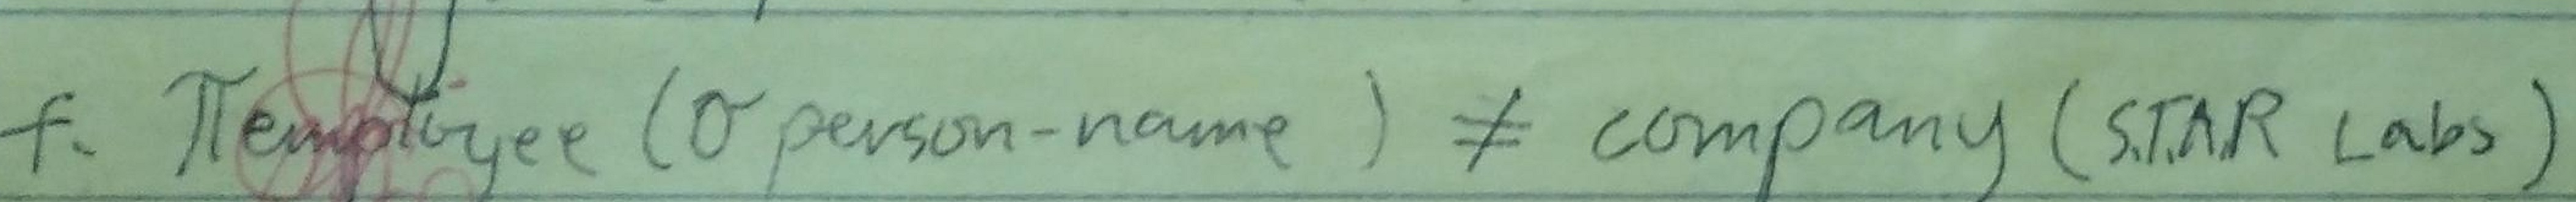 f. πemployee (σ person-name ) ≠ company (S.T.A.R Labs)